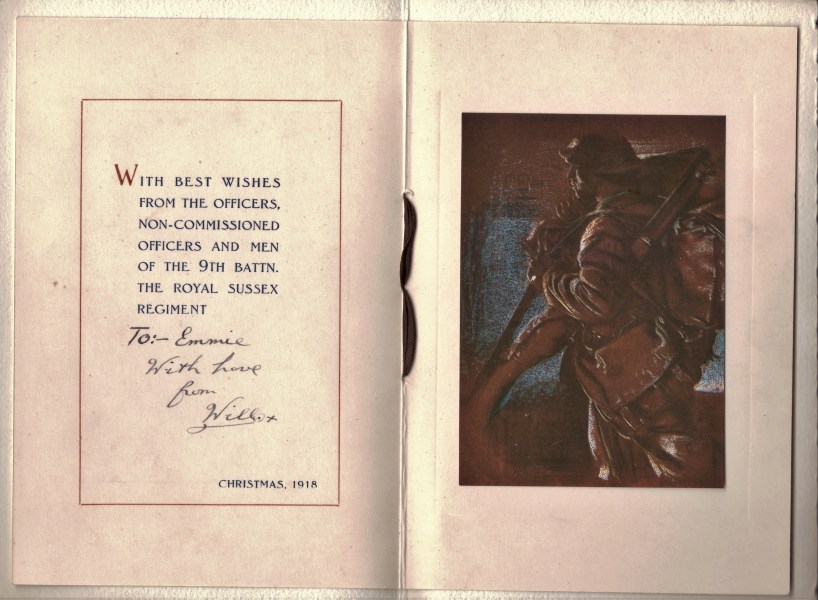 WITH BEST WISHES
FROM THE OFFICERS,
NON-COMMISSIONED
OFFICERS AND MEN
OF THE 9TH BATTN.
THE ROYAL SUSSEX
REGIMENT
To:- Emmie
With love
from
Will x
CHRISTMAS, 1918